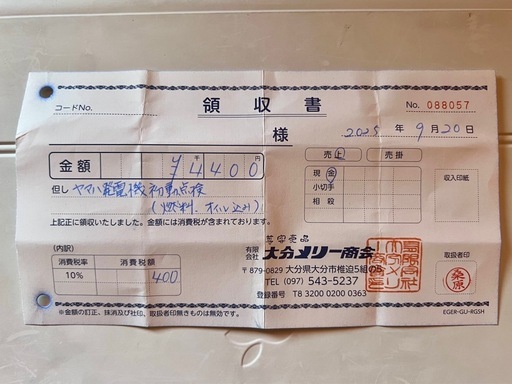 コードNo.
領収書
No. 088057
様
2025 年 9 月 20 日
金額 ¥4400 千 円
売上 売掛
現金
小切手
相殺
収入印紙
但し ヤマハ発電機初動点検
(燃料、オイル込み)
上記正に領収いたしました。金額には消費税が含まれております。
(内訳)
消費税率 消費税額
10% 400
有限会社 大分メリー商会
〒879-0829 大分県大分市椎迫5組の5
TEL (097) 543-5237
登録番号 T8 3200 0200 0363
取扱者印
桑原
※金額の訂正、抹消及び社印、取扱者印なきものは無効です。
EGER-GU-RGSH